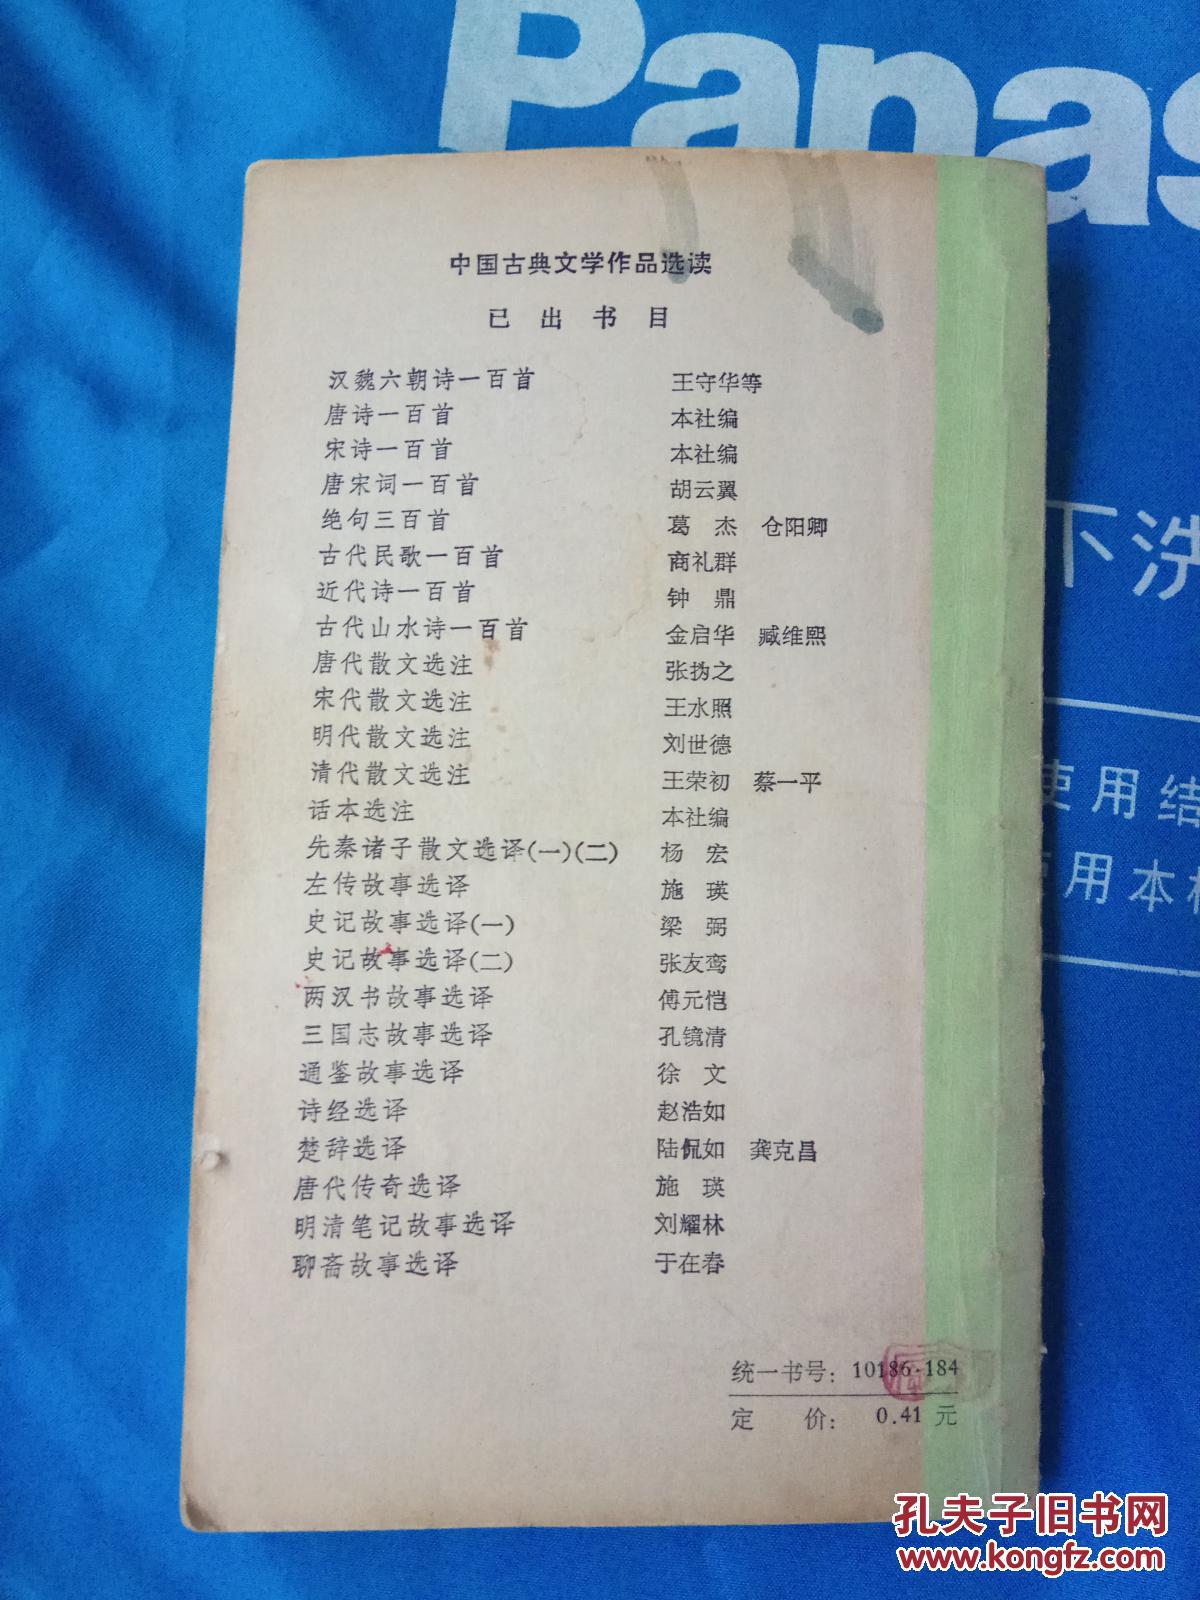 Panas
中国古典文学作品选读
已出书目
汉魏六朝诗一百首 王守华等
唐诗一百首 本社编
宋诗一百首 本社编
唐宋词一百首 胡云翼
绝句三百首 葛杰 仓阳卿
古代民歌一百首 商礼群
近代诗一百首 钟鼎
古代山水诗一百首 金启华 臧维熙
唐代散文选注 张㧑之
宋代散文选注 王水照
明代散文选注 刘世德
清代散文选注 王荣初 蔡一平
话本选注 本社编
先秦诸子散文选译(一)(二) 杨宏
左传故事选译 施瑛
史记故事选译(一) 梁弼
史记故事选译(二) 张友鸾
两汉书故事选译 傅元恺
三国志故事选译 孔镜清
通鉴故事选译 徐文
诗经选译 赵浩如
楚辞选译 陆侃如 龚克昌
唐代传奇选译 施瑛
明清笔记故事选译 刘耀林
聊斋故事选译 于在春
统一书号: 10186·184
定价: 0.41 元
下洗
使用结
用本
孔夫子旧书网
www.kongfz.com